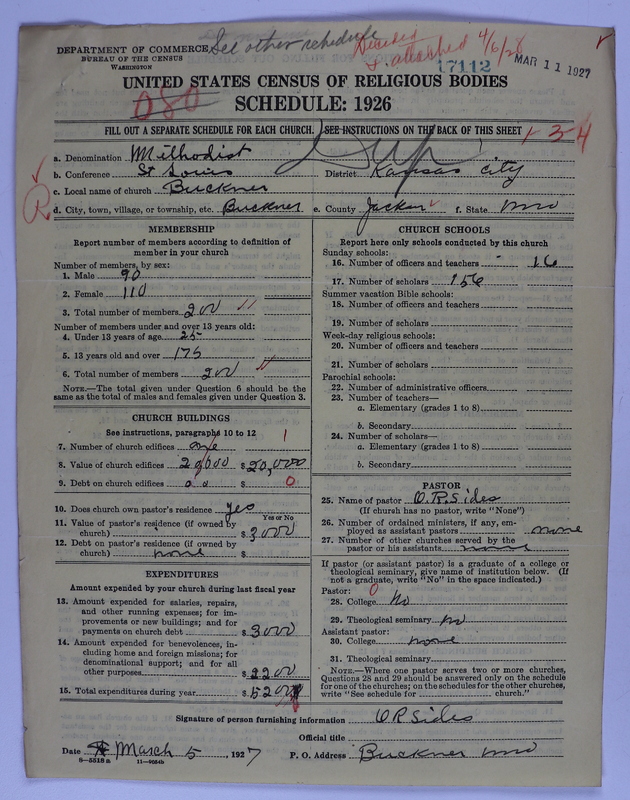 DEPARTMENT OF COMMERCE See other schedule Decided
BUREAU OF THE CENSUS attached 4/6/28
WASHINGTON 17112 MAR 11 1927
UNITED STATES CENSUS OF RELIGIOUS BODIES
080 SCHEDULE: 1926
FILL OUT A SEPARATE SCHEDULE FOR EACH CHURCH. SEE INSTRUCTIONS ON THE BACK OF THIS SHEET 1-3-4
Dup
a. Denomination Methodist
b. Conference St Louis District Kansas City
c. Local name of church Buckner
R
d. City, town, village, or township, etc. Buckner e. County Jackson f. State Mo
MEMBERSHIP
Report number of members according to definition of
member in your church
Number of members, by sex:
1. Male 90
2. Female 110
3. Total number of members 200
Number of members under and over 13 years old:
4. Under 13 years of age 25
5. 13 years old and over 175
6. Total number of members 200
NOTE.—The total given under Question 6 should be the
same as the total of males and females given under Question 3.
CHURCH BUILDINGS
See instructions, paragraphs 10 to 12 1
7. Number of church edifices one
8. Value of church edifices 20,000 $ 20,000
9. Debt on church edifices 00 $ 0
10. Does church own pastor's residence yes
Yes or No
11. Value of pastor's residence (if owned by
church) $ 3000
12. Debt on pastor's residence (if owned by
church) none $
EXPENDITURES
Amount expended by your church during last fiscal year
13. Amount expended for salaries, repairs,
and other running expenses; for im-
provements or new buildings; and for
payments on church debt $ 3000
14. Amount expended for benevolences, in-
cluding home and foreign missions; for
denominational support; and for all
other purposes $ 2200
15. Total expenditures during year $ 5200
CHURCH SCHOOLS
Report here only schools conducted by this church
Sunday schools:
16. Number of officers and teachers 16
17. Number of scholars 156
Summer vacation Bible schools:
18. Number of officers and teachers
19. Number of scholars
Week-day religious schools:
20. Number of officers and teachers
21. Number of scholars
Parochial schools:
22. Number of administrative officers
23. Number of teachers—
a. Elementary (grades 1 to 8)
b. Secondary
24. Number of scholars—
a. Elementary (grades 1 to 8)
b. Secondary
PASTOR
25. Name of pastor O.R. Sides
(If church has no pastor, write "None")
26. Number of ordained ministers, if any, em-
ployed as assistant pastors none
27. Number of other churches served by the
pastor or his assistants none
If pastor (or assistant pastor) is a graduate of a college or
theological seminary, give name of institution below. (If
not a graduate, write "No" in the space indicated.)
Pastor: 0
28. College No
29. Theological seminary No
Assistant pastor:
30. College none
31. Theological seminary
NOTE.—Where one pastor serves two or more churches,
Questions 28 and 29 should be answered only on the schedule
for one of the churches; on the schedules for the other churches,
write "See schedule for church."
Signature of person furnishing information O R Sides
Official title
Date March 5 1927 P. O. Address Buckner Mo
8—5518a 11—9054b